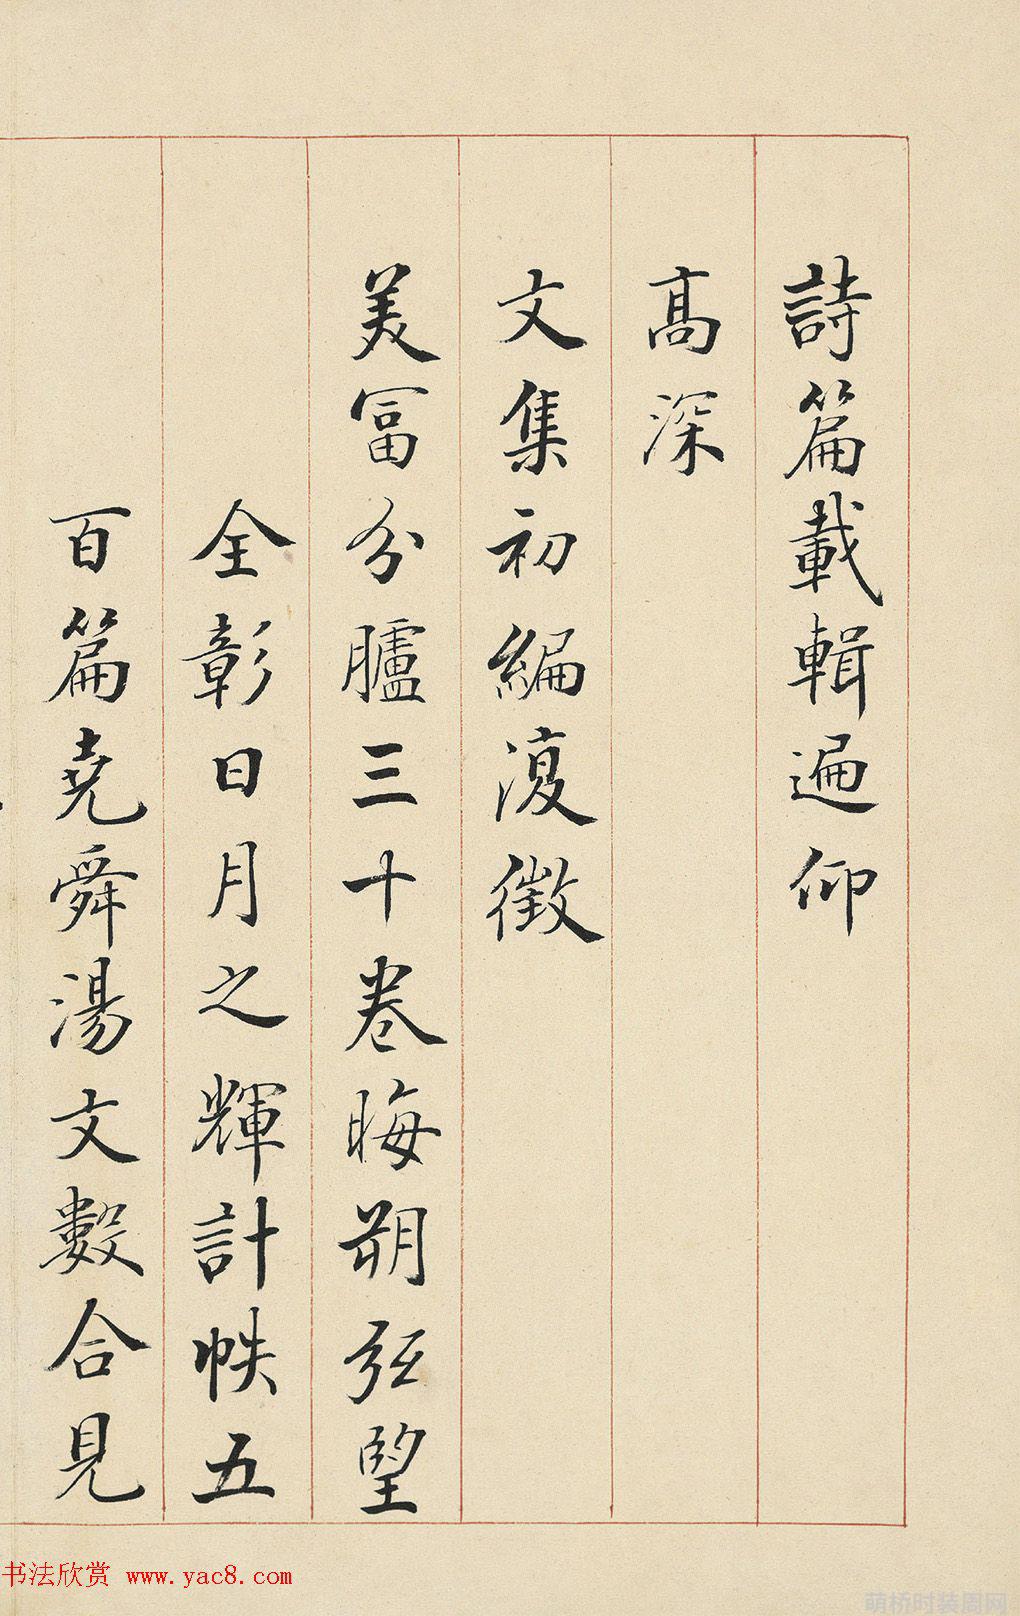 詩篇載輯遍仰
高深
文集初編復徴
美富分臚三十卷晦朔弦望
全彰日月之輝計帙五
百篇堯舜湯文數合見
书法欣赏 www.yac8.com
萌桥时装周网